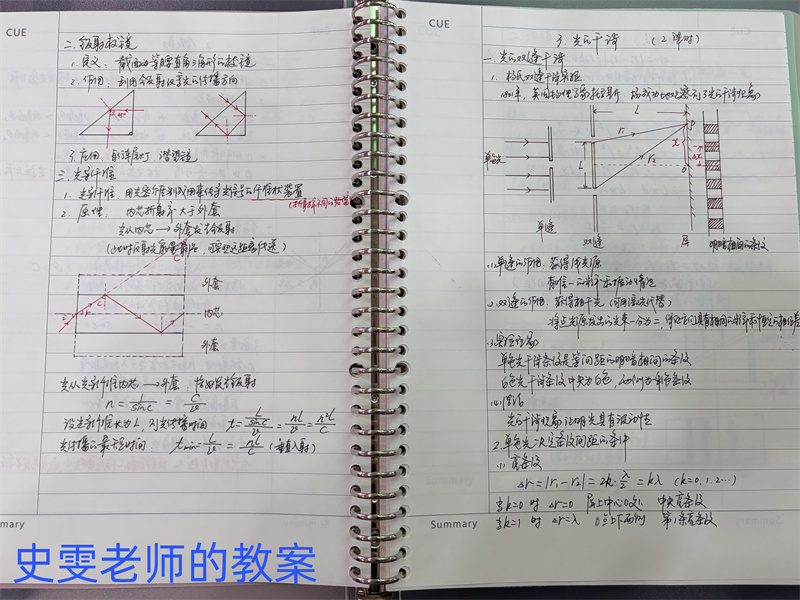 CUE
二.全反射棱镜
1.定义: 截面为等腰直角三角形的棱镜
2.作用: 利用全反射改变光的传播方向
45°
3.应用 自行车尾灯 潜望镜
三.光导纤维
1.光导纤维:
2.原理: 内芯折射率大于外套
光从内芯→外套发生全反射
C
外套
i
r
C
内芯
外套
光从光导纤维内芯→外套 恰好发生全反射
n = 1/sinC = c/v
设光导纤维长为L, 则光传播时间 t = (L/sinC)/v = nL/v = n²L/c
光传播的最短时间 tmin = L/v = nL/c (垂直入射)
mmary
史雯老师的教案
CUE
3.光的干涉 (2课时)
一.光的双缝干涉
1.杨氏双缝干涉实验
1801年, 英国物理学家托马斯·杨成功地观察到了光的干涉现象
L
r₁
P
r₂
x
Δx
O
单色光
单缝
双缝
屏
明暗相间的条纹
(1)单缝的作用: 获得线光源
有唯一的频率和振动情况
(2)双缝的作用: 获得相干光 (可用激光代替)
(3)实验现象
单色光干涉条纹是等间距的明暗相间的条纹
白色光干涉条纹中央为白色, 两侧为彩色条纹
(4)结论
光的干涉现象证明光具有波动性
2.单色光
(1)亮条纹
Δr = |r₁ - r₂| = 2k·λ/2 = kλ (k=0.1.2…)
当k=0时 Δr=0 屏上中心O处 中央亮条纹
当k=1时 Δr=λ O点上下两侧 第1条亮条纹
Summary